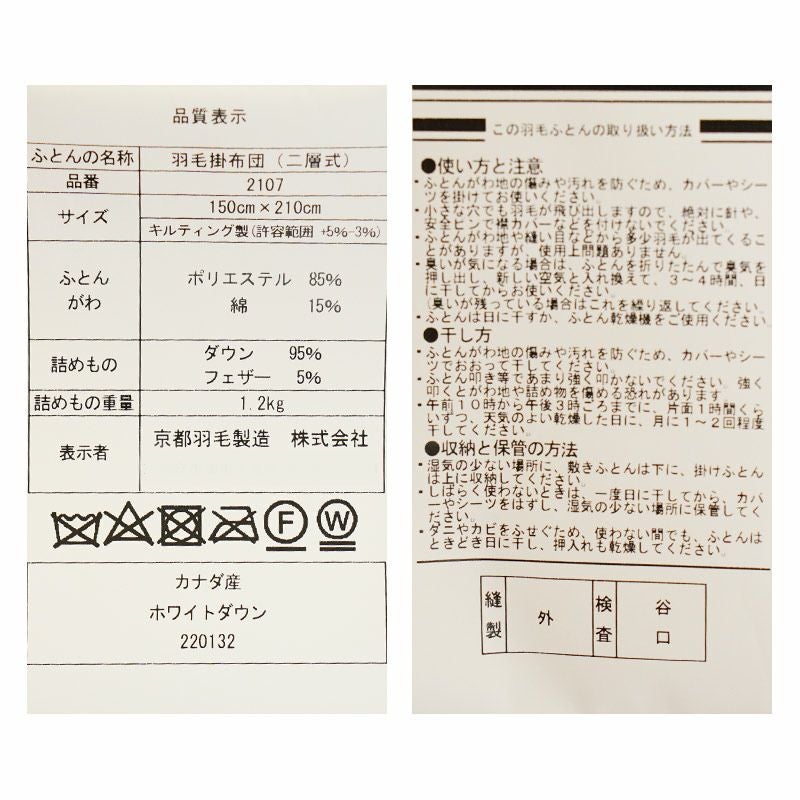 品質表示
ふとんの名称 羽毛掛布団（二層式）
品番 2107
サイズ 150cm×210cm
キルティング製(許容範囲 +5%-3%)
ふとん
がわ
ポリエステル 85%
綿 15%
詰めもの ダウン 95%
フェザー 5%
詰めもの重量 1.2kg
表示者 京都羽毛製造 株式会社
F W
カナダ産
ホワイトダウン
220132
この羽毛ふとんの取り扱い方法
●使い方と注意
・ふとんがわ地の傷みや汚れを防ぐため、カバーやシー
ツを掛けてお使いください。
・小さな穴でも羽毛が飛び出しますので、絶対に針や、
安全ピンで襟カバーなどを付けないでください。
・ふとんがわ地や縫い目などから多少羽毛が出てくるこ
とがありますが、使用上問題ありません。
・臭いが気になる場合は、ふとんを折りたたんで臭気を
押し出し、新しい空気と入れ換えて、3～4時間、日
に干してからお使いください。
(臭いが残っている場合はこれを繰り返してください。)
・ふとんは日に干すか、ふとん乾燥機をご使用ください。
●干し方
・ふとんがわ地の傷みや汚れを防ぐため、カバーやシー
ツでおおって干してください。
・ふとん叩き等であまり強く叩かないでください。強く
叩くとがわ地や詰め物を傷める恐れがあります。
・午前10時から午後3時ごろまでに、片面1時間くら
いずつ、天気のよい乾燥した日に、月に1～2回程度
干してください。
●収納と保管の方法
・湿気の少ない場所に、敷きふとんは下に、掛けふとん
は上に収納してください。
・しばらく使わないときは、一度日に干してから、カバ
ーやシーツをはずし、湿気の少ない場所に保管してく
ださい。
・ダニやカビをふせぐため、使わない間でも、ふとんは
ときどき日に干し、押入れも乾燥してください。
縫製 外 検査 谷口